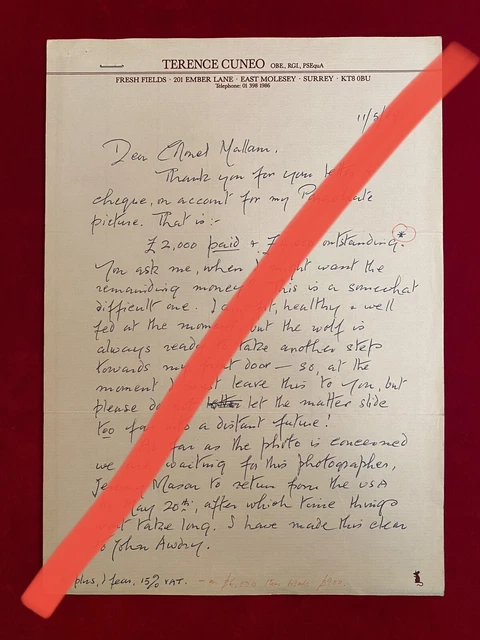 TERENCE CUNEO OBE., RGI., PSEquA
FRESH FIELDS · 201 EMBER LANE · EAST MOLESEY · SURREY · KT8 0BU
Telephone: 01 398 1986
11/5/
Dear Colonel Mallam,
Thank you for your
cheque, on account for my
picture. That is :-
£2,000 paid & outstanding. *
You ask me, when I might want the
remaining money. This is a somewhat
difficult one. I am fit, healthy & well
fed at the moment but the wolf is
always ready to take another step
towards my front door — so, at the
moment I must leave this to you, but
please do not let the matter slide
too far into a distant future!
As far as the photo is concerned
we are waiting for this photographer,
Jeremy Mason to return from the USA
May 20th, after which time things
won't take long. I have made this clear
to John Awdry.
* plus, I fear, 15% VAT.